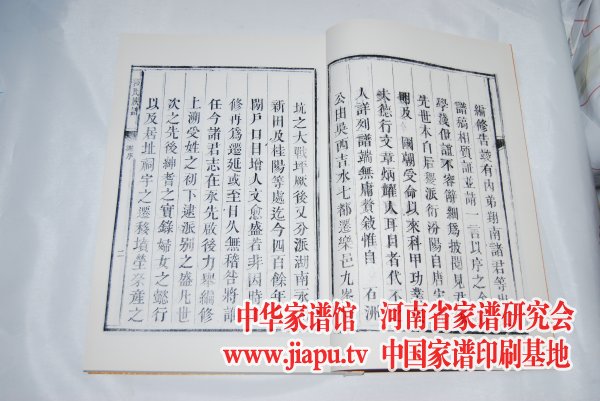 編修告竣有内弟翔南諸君等出
譜稿相質証並請一言以序之余
學淺俗誼不容辭細為披閱見君
先世本自后稷派衍汾陽自唐宗
國朝受命以來科甲功業
德行文章炳耀人耳目者代不
人詳列譜端無庸贅叙惟自 石洲
公由吳西吉水七都遷樂邑九峯
坑之大戰坪厥後又分派湖南永
新田及桂陽等處迄今四百餘年
閒戶口日增人文愈盛若非因時
修再為遷延或至日久無稽告將前
任今諸君志在永先啟後力舉編修
上溯受姓之初下逮派别之盛凡世
次之先後紳耆之實錄婦女之懿行
以及居址祠宇之遷移墳塋祭產之
譜序
二
中华家谱馆 河南省家谱研究会
www.jiapu.tv 中国家谱印刷基地